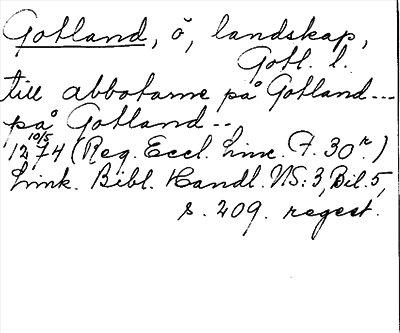 Gotland, ö, landskap,
Gotl. l.
till abbotarne på Gotland---
på Gotland--,
10/5
1274 (Reg. Eccl. Linc. F. 30r.)
Link. Bibl. Handl. NS:3, Bil. 5,
s. 209. regest.